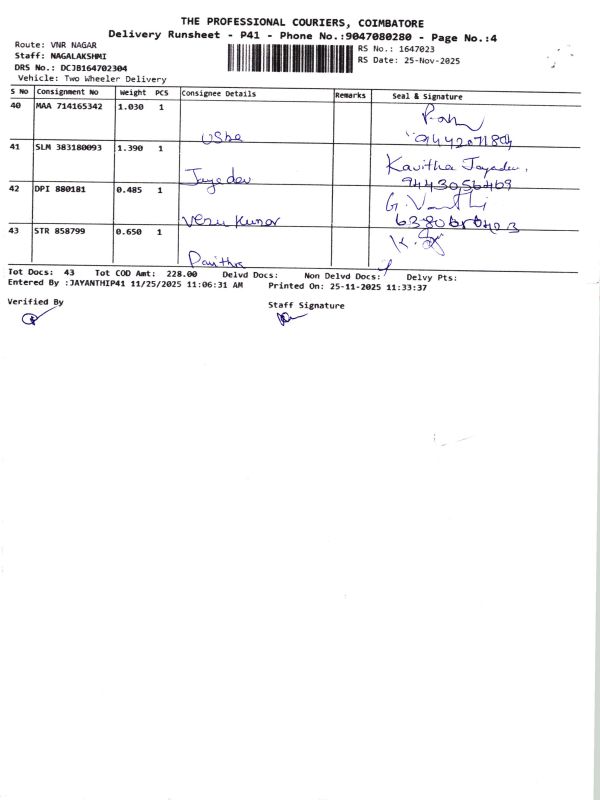 THE PROFESSIONAL COURIERS, COIMBATORE
Delivery Runsheet - P41 - Phone No.:9047080280 - Page No.:4
Route: VNR NAGAR
RS No.: 1647023
Staff: NAGALAKSHMI
RS Date: 25-Nov-2025
DRS No.: DCJB164702304
Vehicle: Two Wheeler Delivery
S No Consignment No Weight PCS Consignee Details Remarks Seal & Signature
40 MAA 714165342 1.030 1
Usha
41 SLM 383180093 1.390 1
Jayadev Kavitha Jayadev,
9443056469
42 DPI 880181 0.485 1
Venu Kumar
43 STR 858799 0.650 1
Pavithra
Tot Docs: 43 Tot COD Amt: 228.00 Delvd Docs: Non Delvd Docs: Delvy Pts:
Entered By :JAYANTHIP41 11/25/2025 11:06:31 AM Printed On: 25-11-2025 11:33:37
Verified By Staff Signature